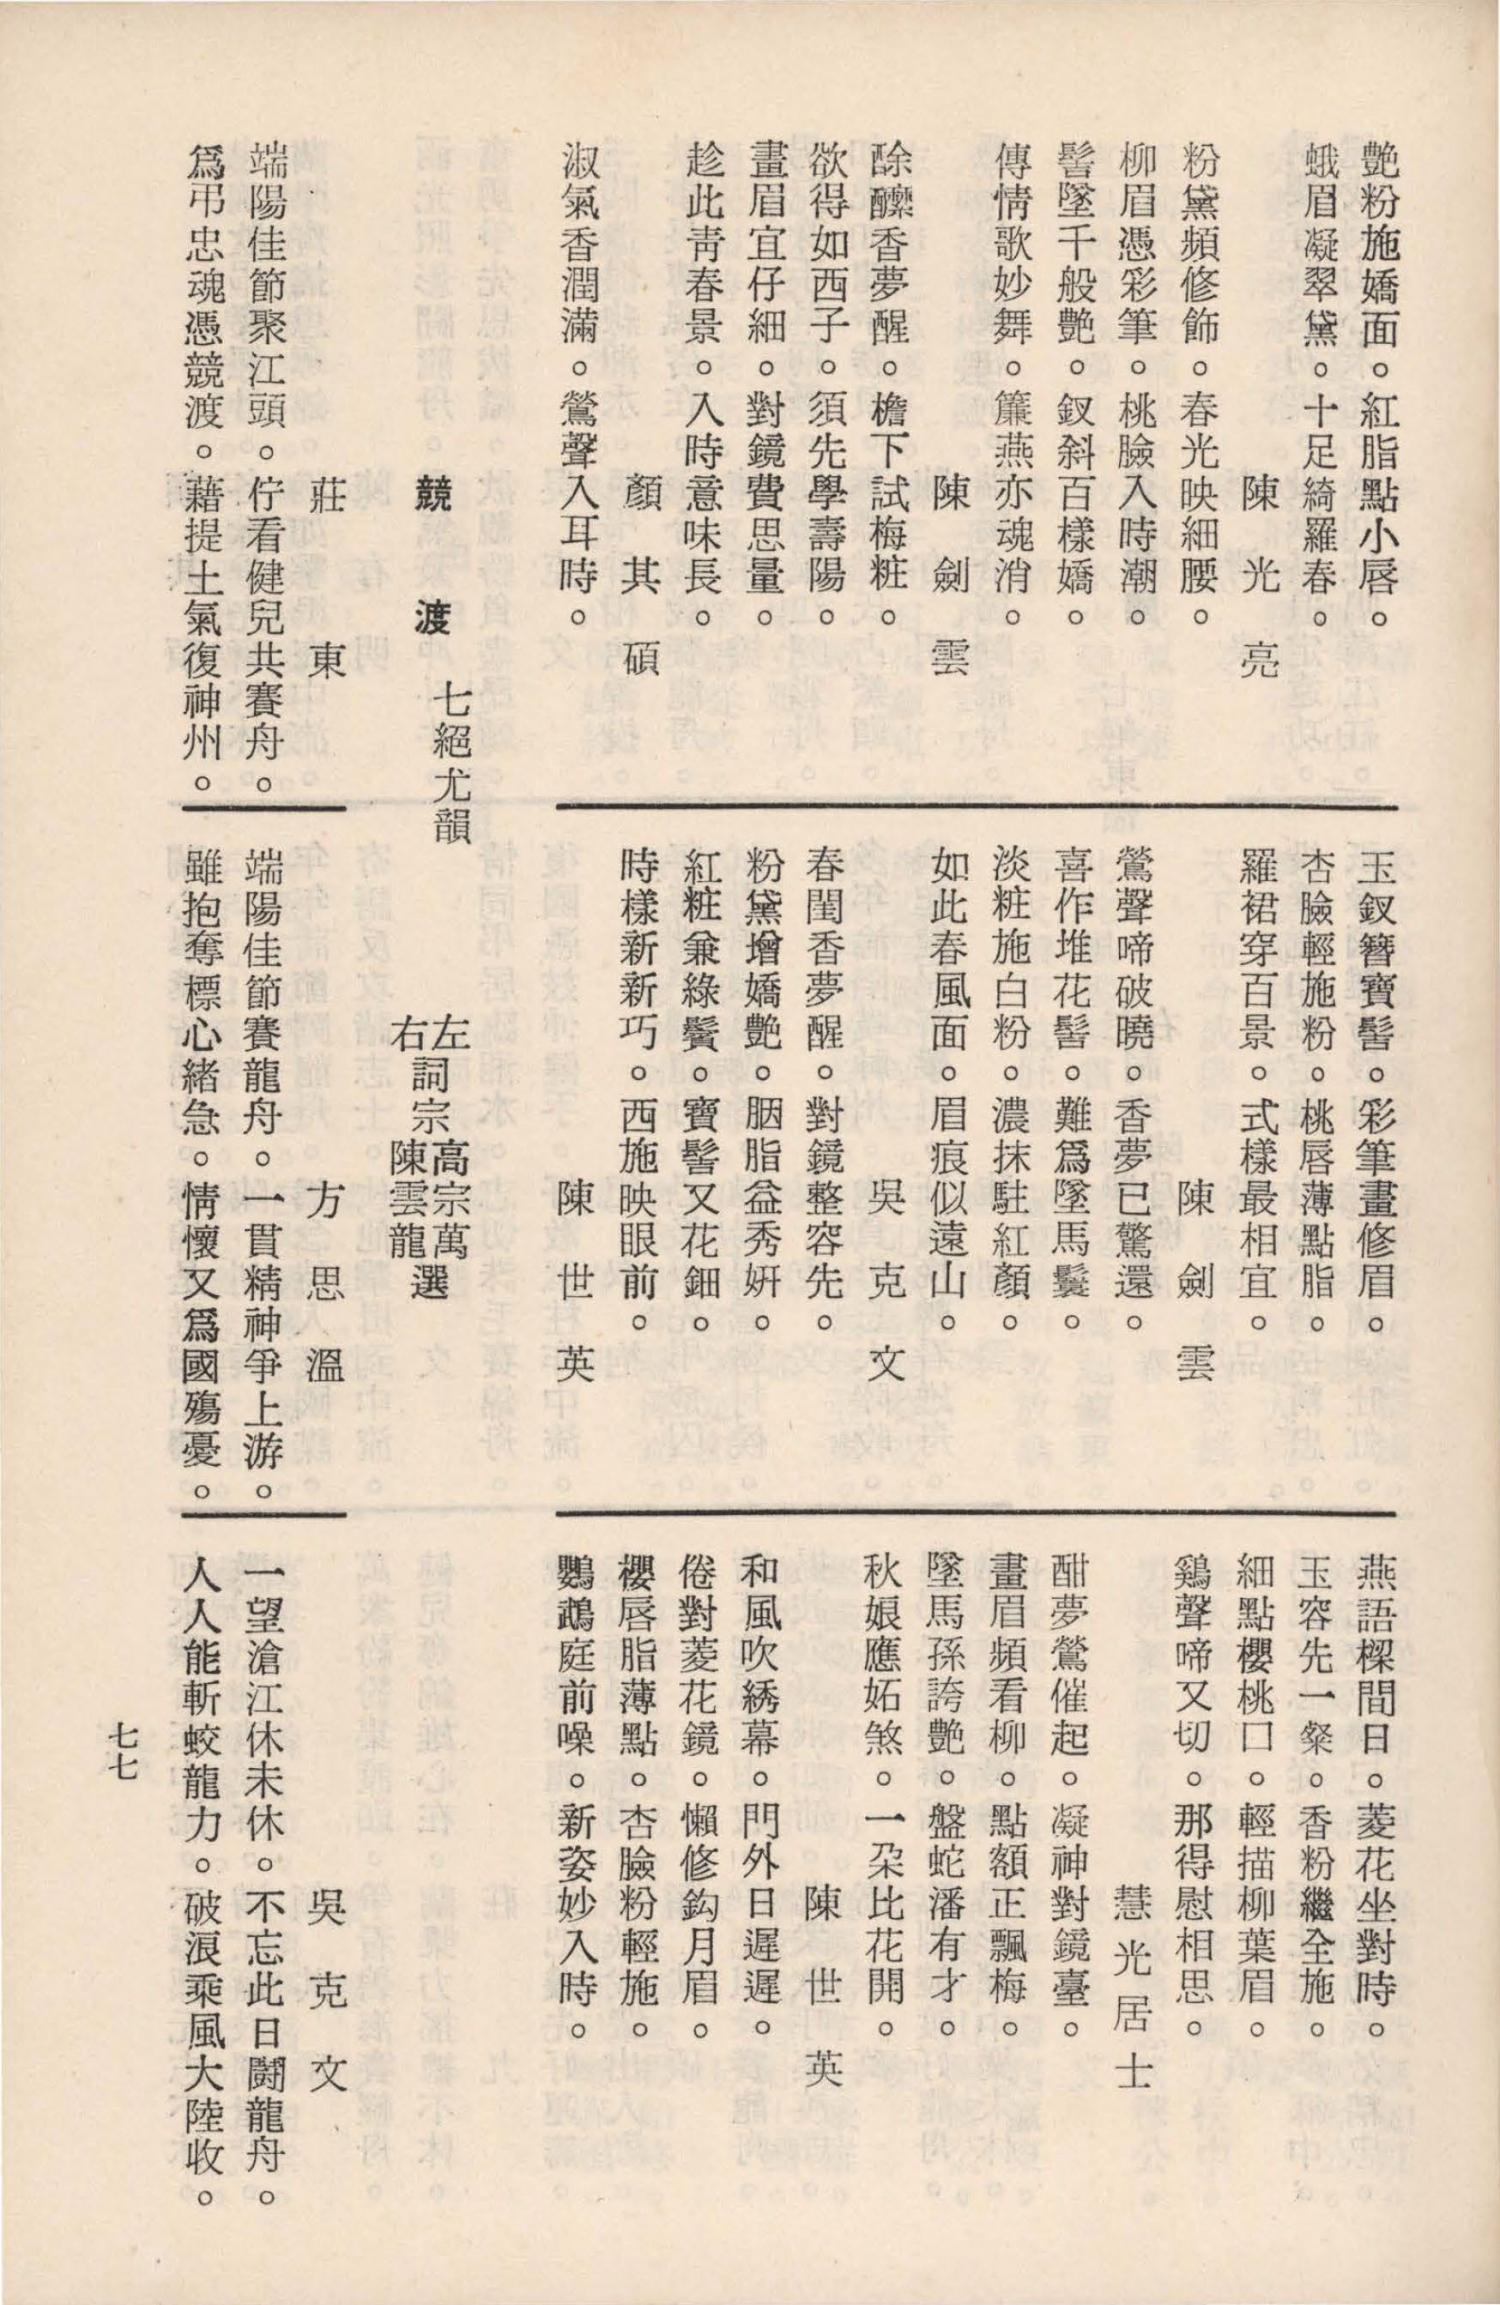 艷粉施嬌面。紅脂點小唇。
蛾眉凝翠黛。十足綺羅春。
陳光亮
粉黛頻修飾。春光映細腰。
柳眉憑彩筆。桃臉入時潮。
髻墜千般艷。釵斜百樣嬌。
傳情歌妙舞。簾燕亦魂消。
陳劍雲
酴醾香夢醒。檐下試梅粧。
欲得如西子。須先學壽陽。
畫眉宜仔細。對鏡費思量。
趁此靑春景。入時意味長。
顏其碩
淑氣香潤滿。鶯聲入耳時。
玉釵簪寶髻。彩筆畫修眉。
杏臉輕施粉。桃唇薄點脂。
羅裙穿百景。式樣最相宜。
陳劍雲
鶯聲啼破曉。香夢已驚還。
喜作堆花髻。難爲墜馬鬟。
淡粧施白粉。濃抹駐紅顏。
如此春風面。眉痕似遠山。
吳克文
春閨香夢醒。對鏡整容先。
粉黛增嬌艷。胭脂益秀姸。
紅粧兼綠鬢。寶髻又花鈿。
時樣新新巧。西施映眼前。
陳世英
燕語樑間日。菱花坐對時。
玉容先一粲。香粉繼全施。
細點櫻桃口。輕描柳葉眉。
鷄聲啼又切。那得慰相思。
慧光居士
酣夢鶯催起。凝神對鏡臺。
畫眉頻看柳。點額正飄梅。
墜馬孫誇艷。盤蛇潘有才。
秋娘應妬煞。一朶比花開。
陳世英
和風吹綉幕。門外日遲遲。
倦對菱花鏡。懶修鈎月眉。
櫻唇脂薄點。杏臉粉輕施。
鸚鵡庭前噪。新姿妙入時。
競渡 七絕尤韻
左右詞宗高宗萬陳雲龍選
莊東
端陽佳節聚江頭。佇看健兒共賽舟。
爲弔忠魂憑競渡。藉提士氣復神州。
方思溫
端陽佳節賽龍舟。一貫精神爭上游。
雖抱奪標心緒急。情懷又爲國殤憂。
吳克文
一望滄江休未休。不忘此日鬪龍舟。
人人能斬蛟龍力。破浪乘風大陸收。
七七